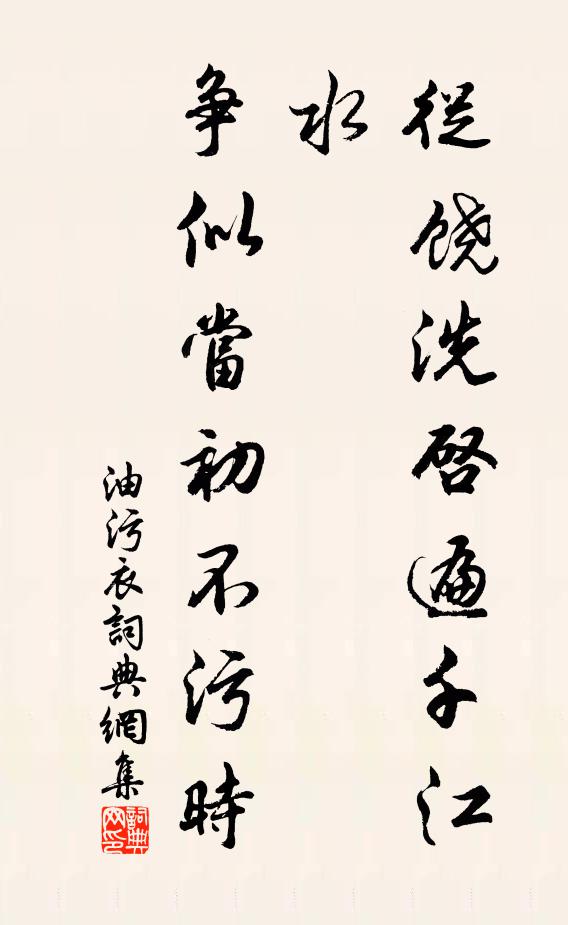 從饒洗啓遍千江
水
争似當初不污時
油污衣詞典網集
詞典
网印